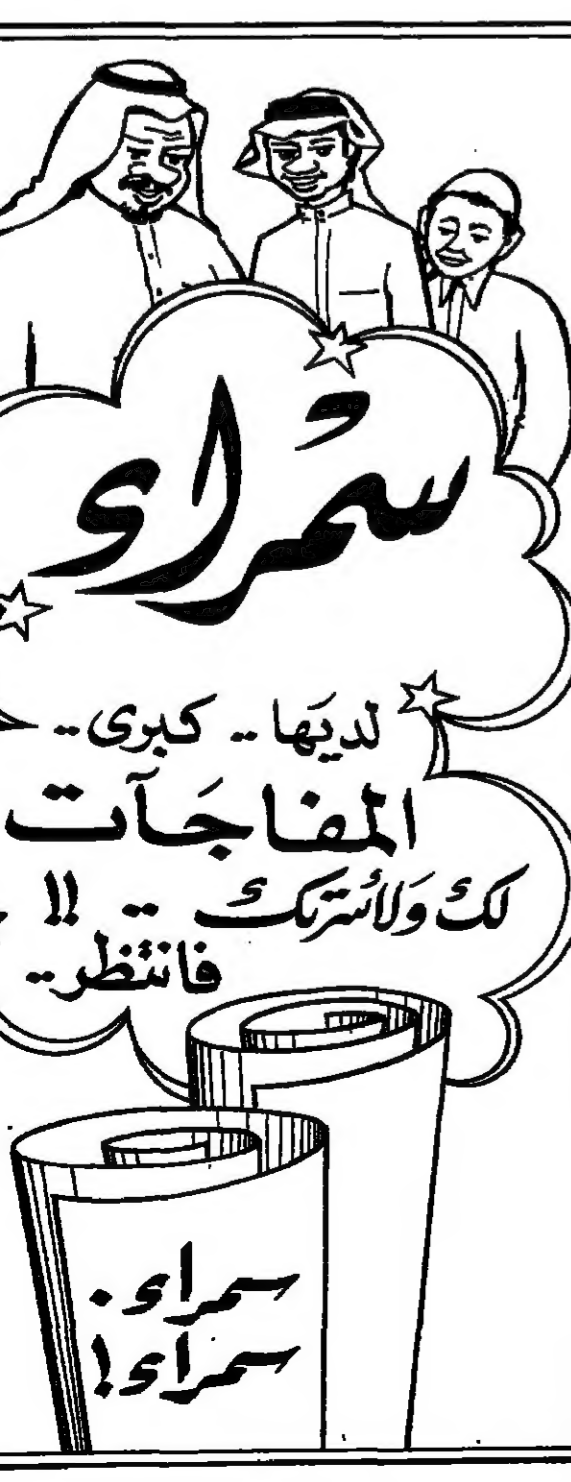 سمراء
لديها .. كبرى ..
المفاجآت
لك ولأسرتك .. !!
فانتظر ..
سمراء .
سمراء !